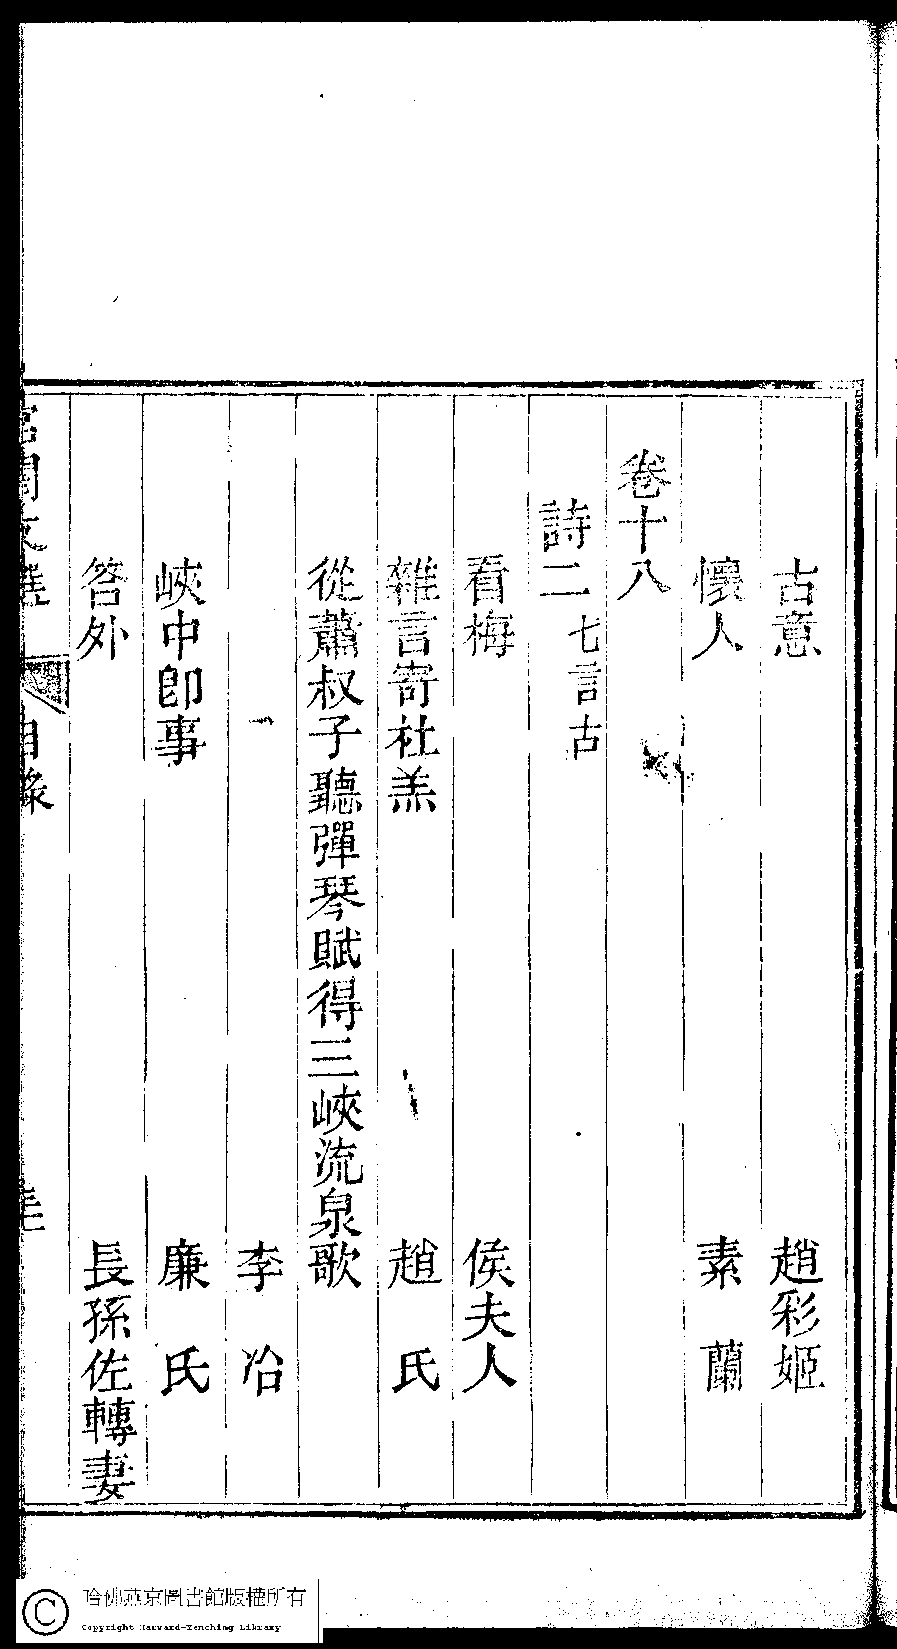 古意 趙彩姬
懷人 素蘭
卷十八
詩二 七言古
看梅 侯夫人
雜言寄社羔 趙氏
從蕭叔子聽彈琴賦得三峽流泉歌
李冶
峽中卽事 廉氏
答外 長孫佐轉妻
宮閨文選 目錄
哈佛燕京圖書館版權所有
Copyright Harvard-Yenching Library